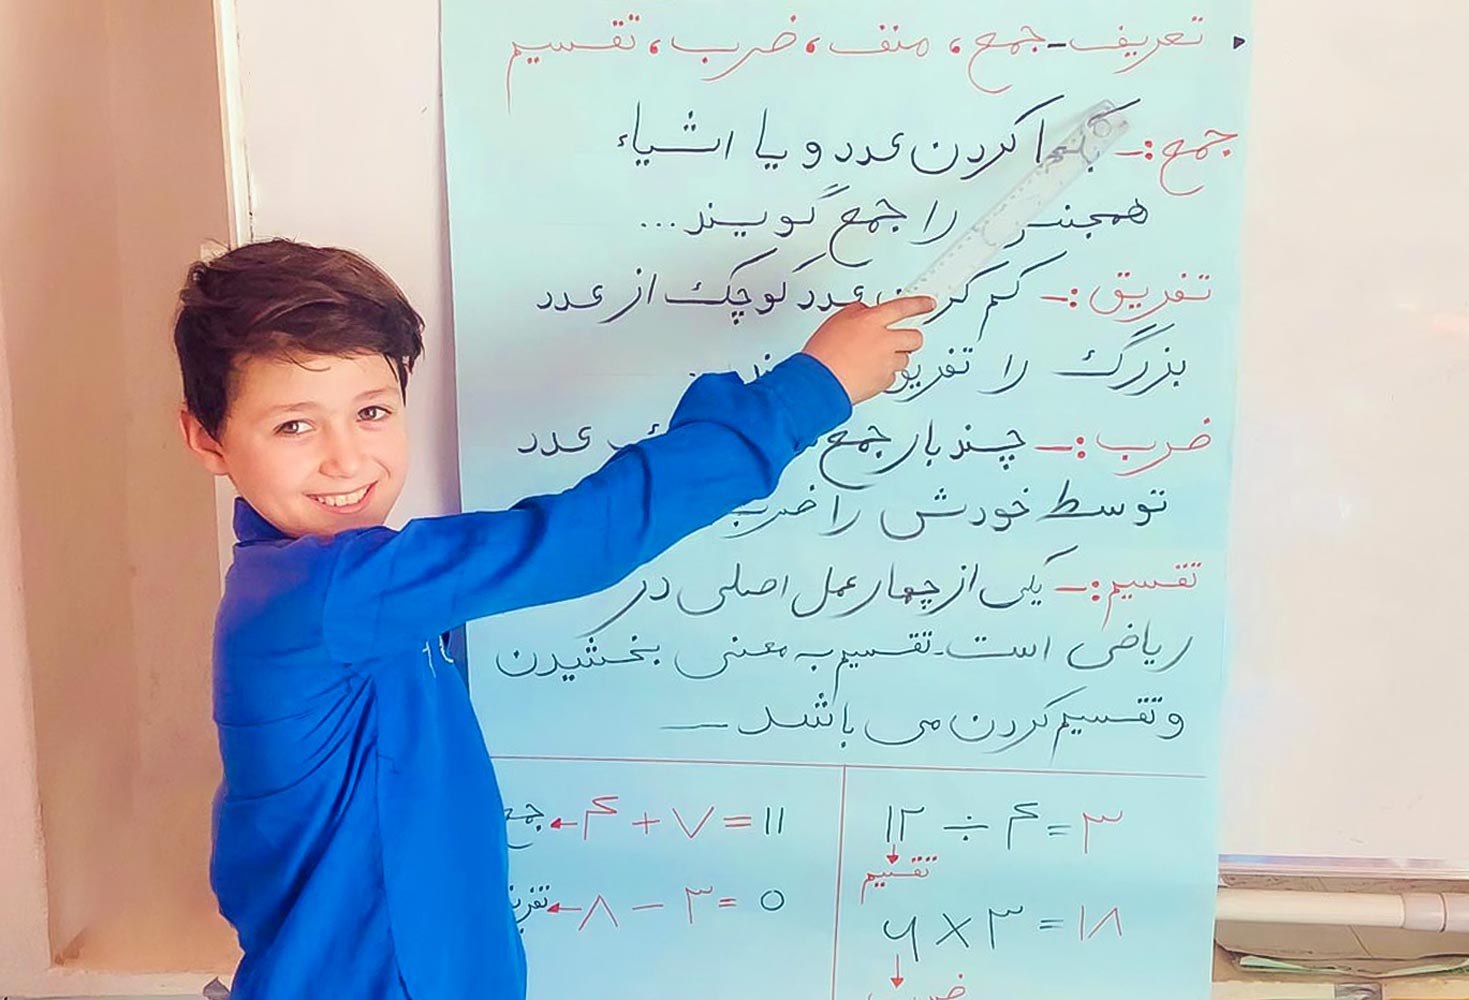 تعریف_جمع، منف، ضرب، تقسیم
جمع:_ یکجا کردن عدد و یا اشیاء
همجنس را جمع گویند...
تفریق:_ کم کردن عدد کوچک از عدد
بزرگ را تفریق
ضرب:_ چند بار جمع عدد
توسط خودش را ضرب
تقسیم:_ یکی از چهار عمل اصلی در
ریاضی است_تقسیم به معنی بخشیدن
و تقسیم کردن می باشد_
۱۲ ÷ ۴ = ۳
تقسیم
۶ × ۳ = ۱۸
ضرب
جمع ۴ + ۷ = ۱۱
۸ - ۳ = ۵